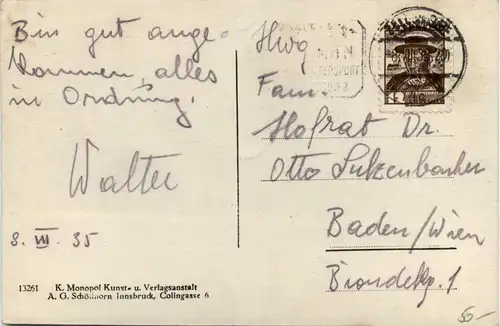 Bin gut ange-
kommen, alles
in Ordnung.
Walter
8. VII. 35
Hwg
Fam.
Hofrat Dr.
Otto Sulzenbacher
Baden/Wien
13261 K. Monopol Kunst- u. Verlagsanstalt
A. G. Schöllhorn Innsbruck, Colingasse 6
50-